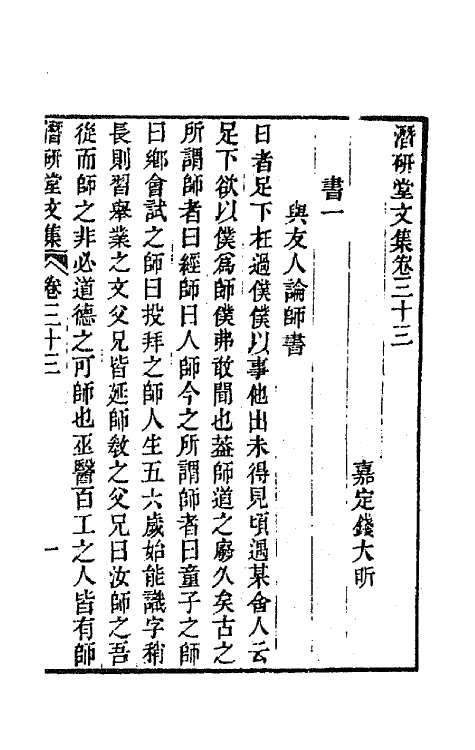 潛研堂文集卷三十三
嘉定錢大昕
書一
與友人論師書
日者足下枉過僕僕以事他出未得見頃遇某舍人云
足下欲以僕爲師僕弗敢聞也葢師道之廢久矣古之
所謂師者曰經師曰人師今之所謂師者曰童子之師
曰鄉會試之師曰投拜之師人生五六歲始能識字稍
長則習舉業之文父兄皆延師敎之父兄曰汝師之吾
從而師之非必道德之可師也巫醫百工之人皆有師
潛研堂文集 卷三十三 一